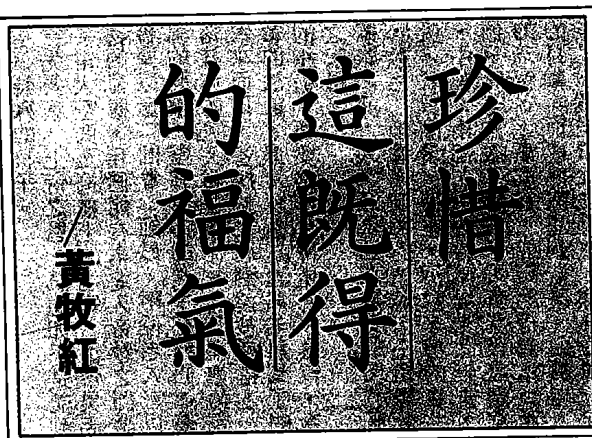 珍惜
這既得
的福氣
／黃牧紅